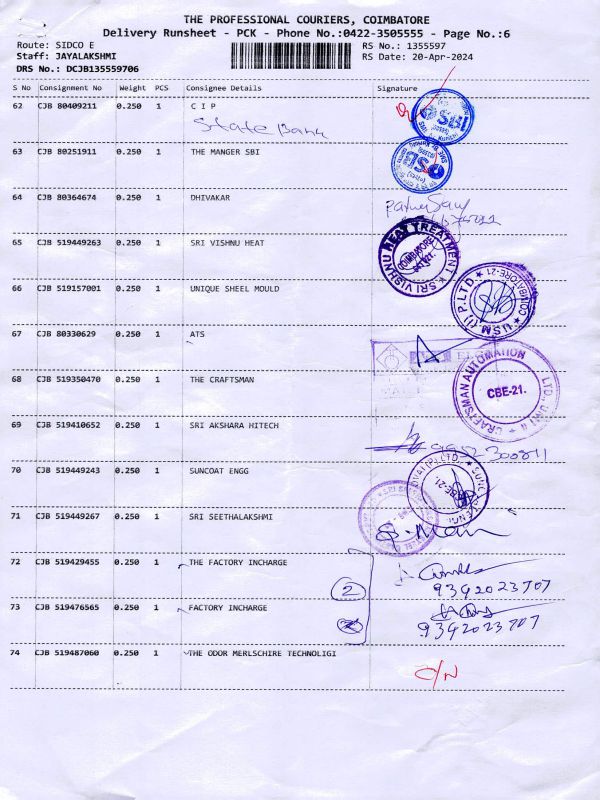 THE PROFESSIONAL COURIERS, COIMBATORE
Delivery Runsheet - PCK - Phone No.:0422-3505555 - Page No.:6
Route: SIDCO E RS No.: 1355597
Staff: JAYALAKSHMI RS Date: 20-Apr-2024
DRS No.: DCJB135559706
S No Consignment No Weight PCS Consignee Details Signature
62 CJB 80409211 0.250 1 C I P
State Bank
SBI
63 CJB 80251911 0.250 1 THE MANGER SBI
64 CJB 80364674 0.250 1 DHIVAKAR
65 CJB 519449263 0.250 1 SRI VISHNU HEAT
SRI VISHNU HEAT TREATMENT
COIMBATORE
66 CJB 519157001 0.250 1 UNIQUE SHEEL MOULD
USM (I) P.LTD ★ COIMBATORE-21 ★
67 CJB 80330629 0.250 1 ATS
68 CJB 519350470 0.250 1 THE CRAFTSMAN
CRAFTSMAN AUTOMATION LTD., UNIT
CBE-21.
69 CJB 519410652 0.250 1 SRI AKSHARA HITECH
70 CJB 519449243 0.250 1 SUNCOAT ENGG
CBE-21.
71 CJB 519449267 0.250 1 SRI SEETHALAKSHMI
72 CJB 519429455 0.250 1 THE FACTORY INCHARGE
2
9392023707
73 CJB 519476565 0.250 1 FACTORY INCHARGE
9392023707
74 CJB 519487060 0.250 1 THE ODOR MERLSCHIRE TECHNOLIGI
C/N